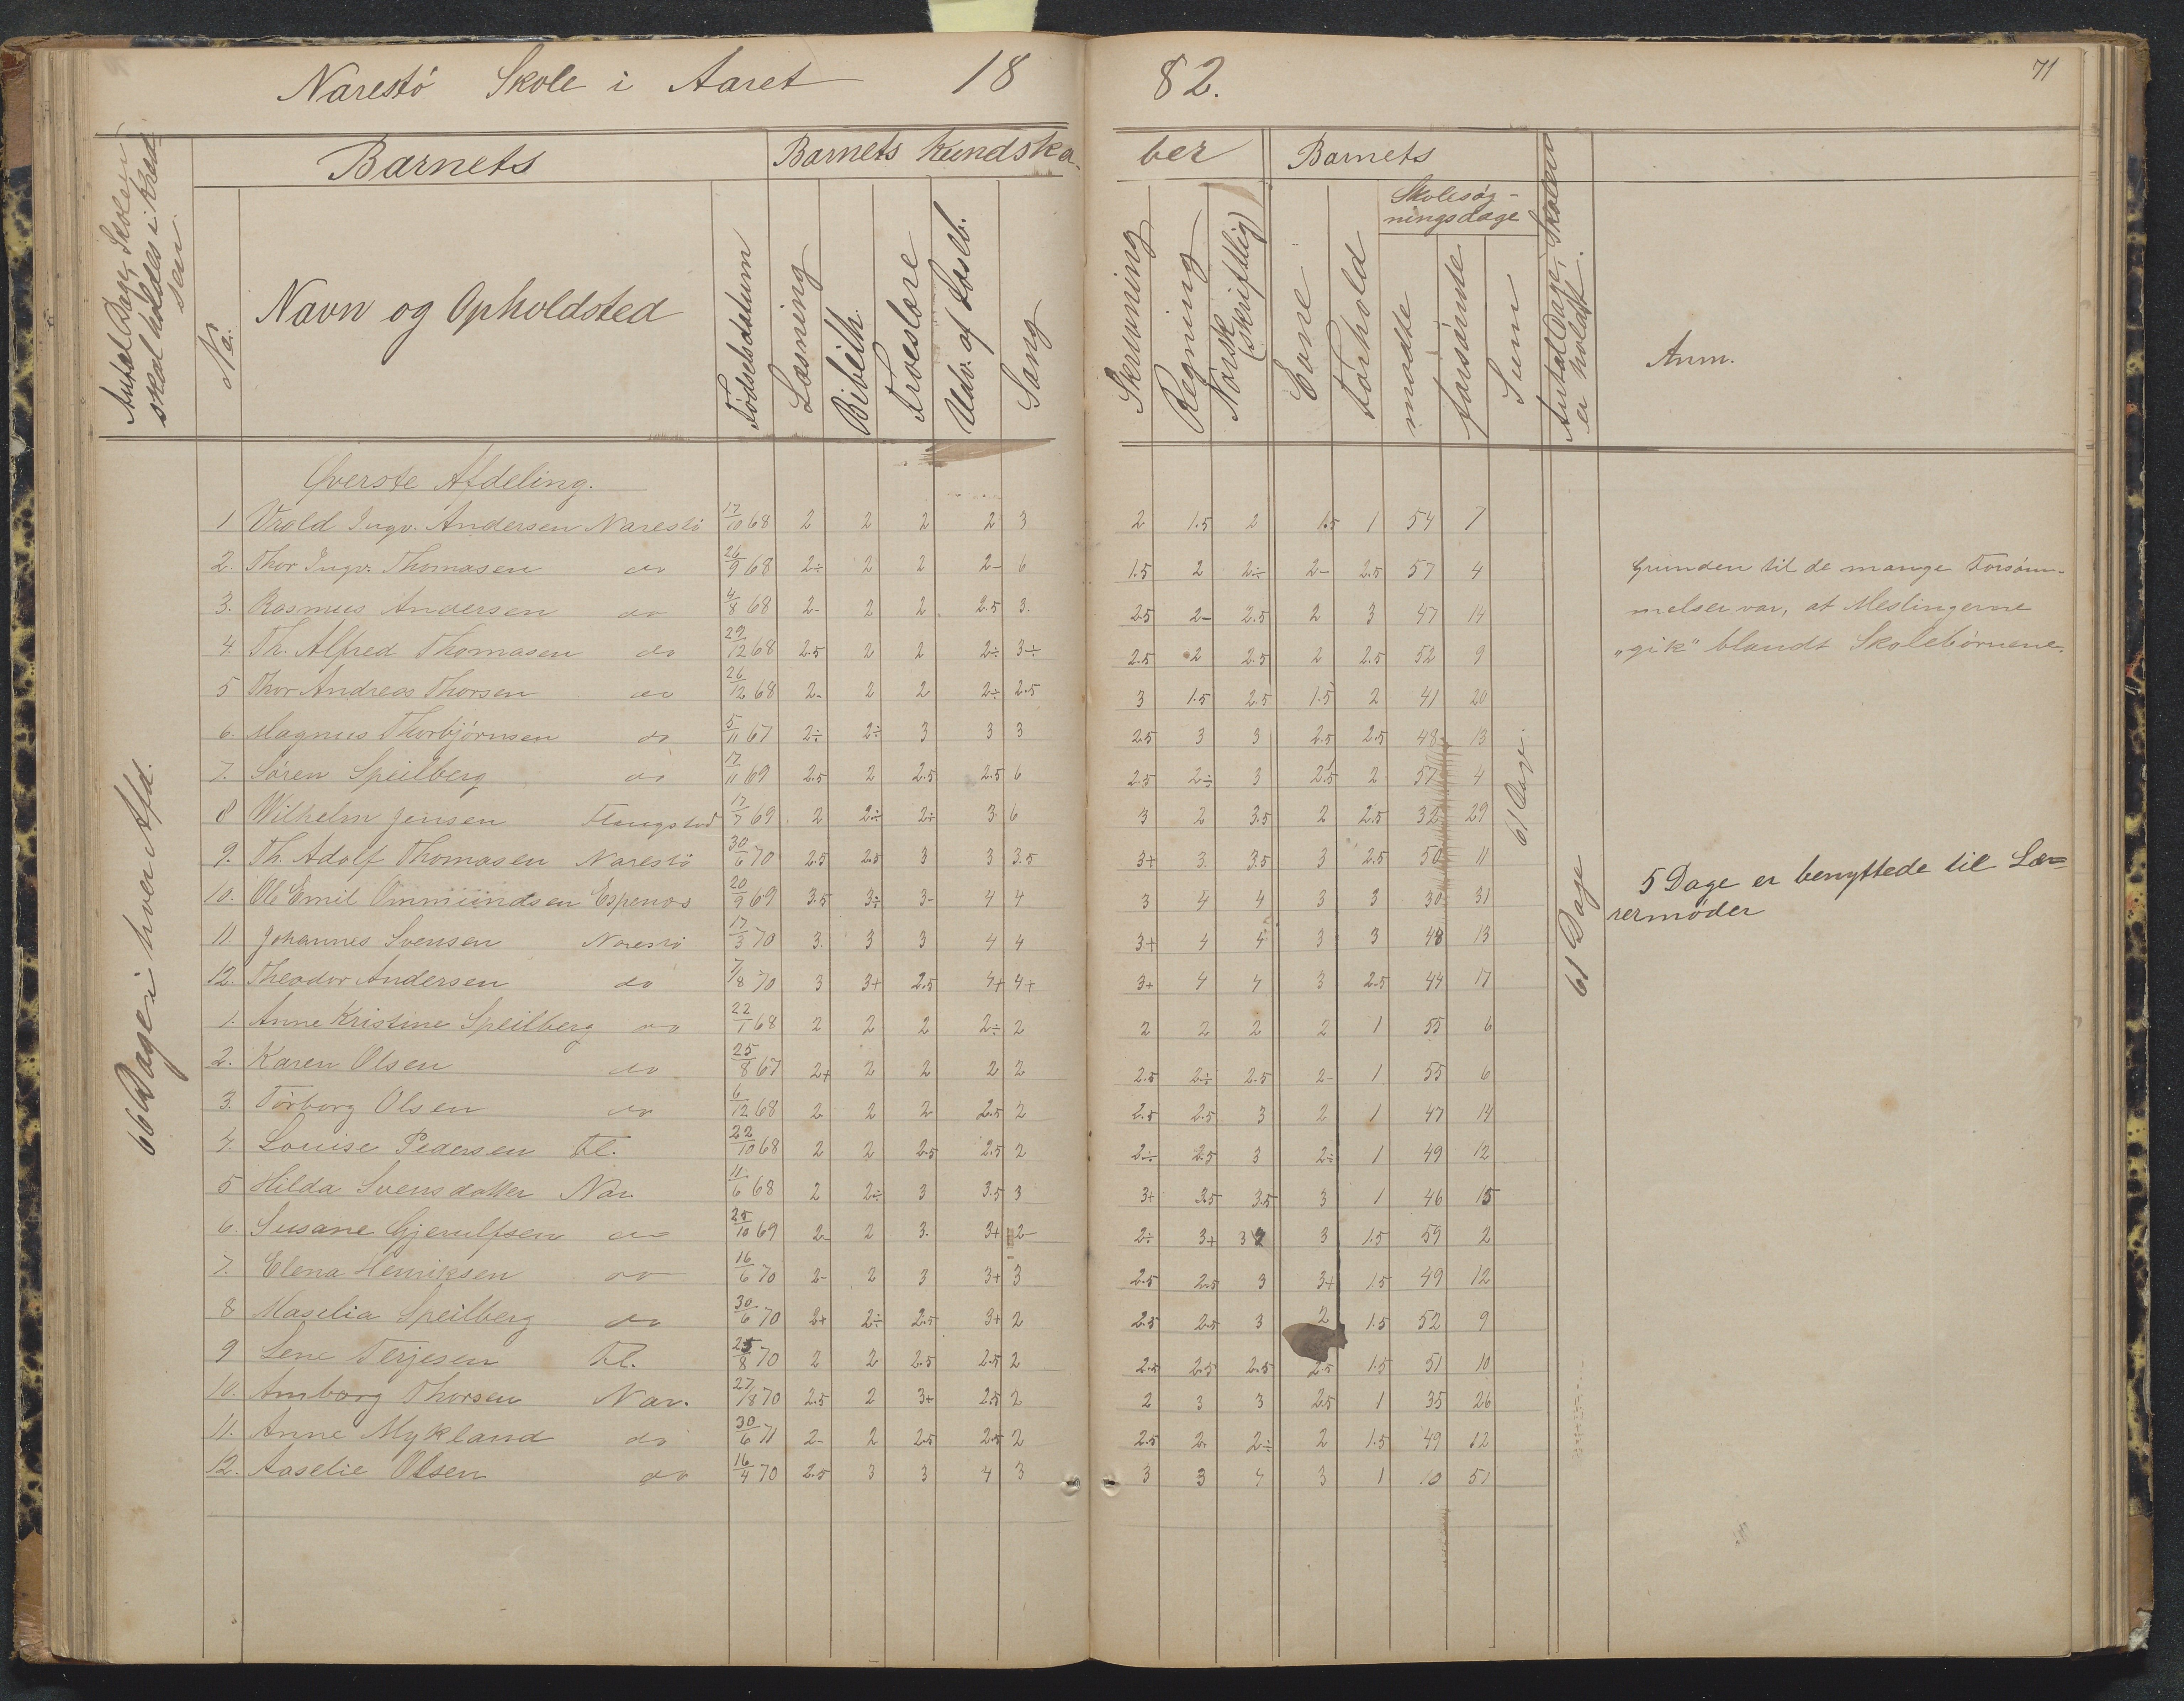 Narestö Skole i Aaret 1882.
71
Antal Dage, Skolen skal holdes i Kredsen.
Barnets
Barnets Kundskaber
Barnets
No.
Navn og Opholdsted
Fødselsdatum
Læsning
Bibelh.
Troeslære
Udv. af Læseb.
Sang
Skrivning
Regning
Norsk (skriftlig)
Evne
Forhold
Skolesøgningsdage
mødte
forsømte
Sum
Antal Dage, Skolen er holdt.
Anm.
Øverste Afdeling.
1 Vrold Ingv. Andersen Narestö 17/10 68 2 2 2 2 3 2 1.5 2 1.5 1 54 7
2. Thor Ingv. Thomasen do 26/9 68 2÷ 2 2 2- 6 1.5 2 2÷ 2- 2.5 57 4
3. Rasmus Andersen do 4/8 68 2- 2 2 2.5 3. 2.5 2- 2.5 2 3 47 14
4. Th. Alfred Thomasen do 29/12 68 2.5 2 2 2÷ 3÷ 2.5 2 2.5 2 2.5 52 9
5 Thor Andreas Thorsen do 26/12 68 2- 2 2 2÷ 2.5 3 1.5 2.5 1.5 2 41 20
6. Magnus Thorbjørnsen do 5/11 67 2÷ 2÷ 3 3 3 2.5 3 3 2.5 2.5 48 13
7. Søren Speilberg do 17/11 69 2.5 2 2.5 2.5 6 2.5 2÷ 3 2.5 2 57 4
8 Wilhelm Jensen Flangstad 17/7 69 2 2÷ 2÷ 3 6 3 2 3.5 2 2.5 32 29
9. Th. Adolf Thomasen Narestö 30/6 70 2.5 2.5 3 3 3.5 3+ 3. 3.5 3 2.5 50 11
10. Ole Emil Ommundsen Espenæs 20/9 69 3.5 3÷ 3- 4 4 3 4 4 3 3 30 31
11. Johannes Svensen Narestö 17/3 70 3. 3 3 4 4 3+ 4 4 3 3 48 13
12. Theodor Andersen do 7/8 70 3 3+ 2.5 4+ 4+ 3+ 4 4 3 2.5 44 17
1. Anne Kristine Speilberg do 22/1 68 2 2 2 2÷ 2 2 2 2 2 1 55 6
2. Karen Olsen do 25/8 67 2+ 2 2 2 2 2.5 2÷ 2.5 2- 1 55 6
3. Torborg Olsen do 6/12 68 2 2 2 2.5 2 2.5 2.5 3 2 1 47 14
4. Louise Pedersen Fl. 22/10 68 2 2 2.5 2.5 2 2÷ 2.5 3 2÷ 1 49 12
5 Hilda Svensdatter Nar. 11/6 68 2 2÷ 3 3.5 3 3+ 3.5 3.5 3 1 46 15
6. Susane Gjerulfsen do 25/10 69 2- 2 3. 3+ 2- 2÷ 3+ 3 3 1.5 59 2
7. Elena Henriksen do 16/6 70 2- 2 3 3+ 3 2.5 2.5 3 3+ 1.5 49 12
8 Maselia Speilberg do 30/6 70 2+ 2÷ 2.5 3+ 2 2.5 2.5 3 2 1.5 52 9
9 Lene Terjesen Fl. 25/8 70 2 2 2.5 2.5 2 2.5 2.5 2.5 2.5 1.5 51 10
10. Amborg Thorsen Nar. 27/8 70 2.5 2 3+ 2.5 2 2 3 3 2.5 1 35 26
11. Anne Mykland do 30/6 71 2- 2 2.5 2.5 2 2.5 2. 2÷ 2 1.5 49 12
12. Aaselie Olsen do 16/4 70 2.5 3 3 4 3 3 3 4 3 1 10 51
66 Dage i hver Afd.
61 Dage.
61 Dage
Grunden til de mange Forsøm-
melser var, at Meslingerne
„gik" blandt Skolebørnene.
5 Dage er benyttede til Læ=
rermøder